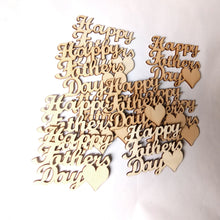 Happy
Fathers
Day
Happy
Fathers
Day
Happy
Fathers
Day
Happy
Fathers
Day